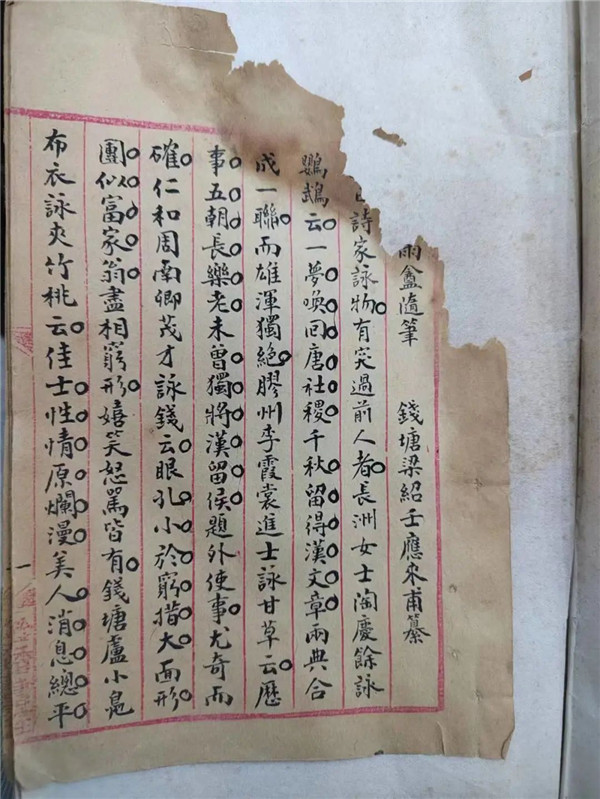 雨盦隨筆 錢塘梁紹壬應來甫纂
日詩家詠物有突過前人者長洲女士陶慶餘詠
鸚鵡云一夢喚回唐社稷千秋留得漢文章兩典合
成一聯而雄渾獨絕膠州李霞裳進士詠甘草云歷
事五朝長樂老未曾獨將漢留侯題外使事尤奇而
確仁和周南卿茂才詠錢云眼孔小於窮措大面形
團似富家翁盡相窮形嬉笑怒罵皆有錢塘盧小鳧
布衣詠夾竹桃云佳士性情原爛漫美人消息總平
一